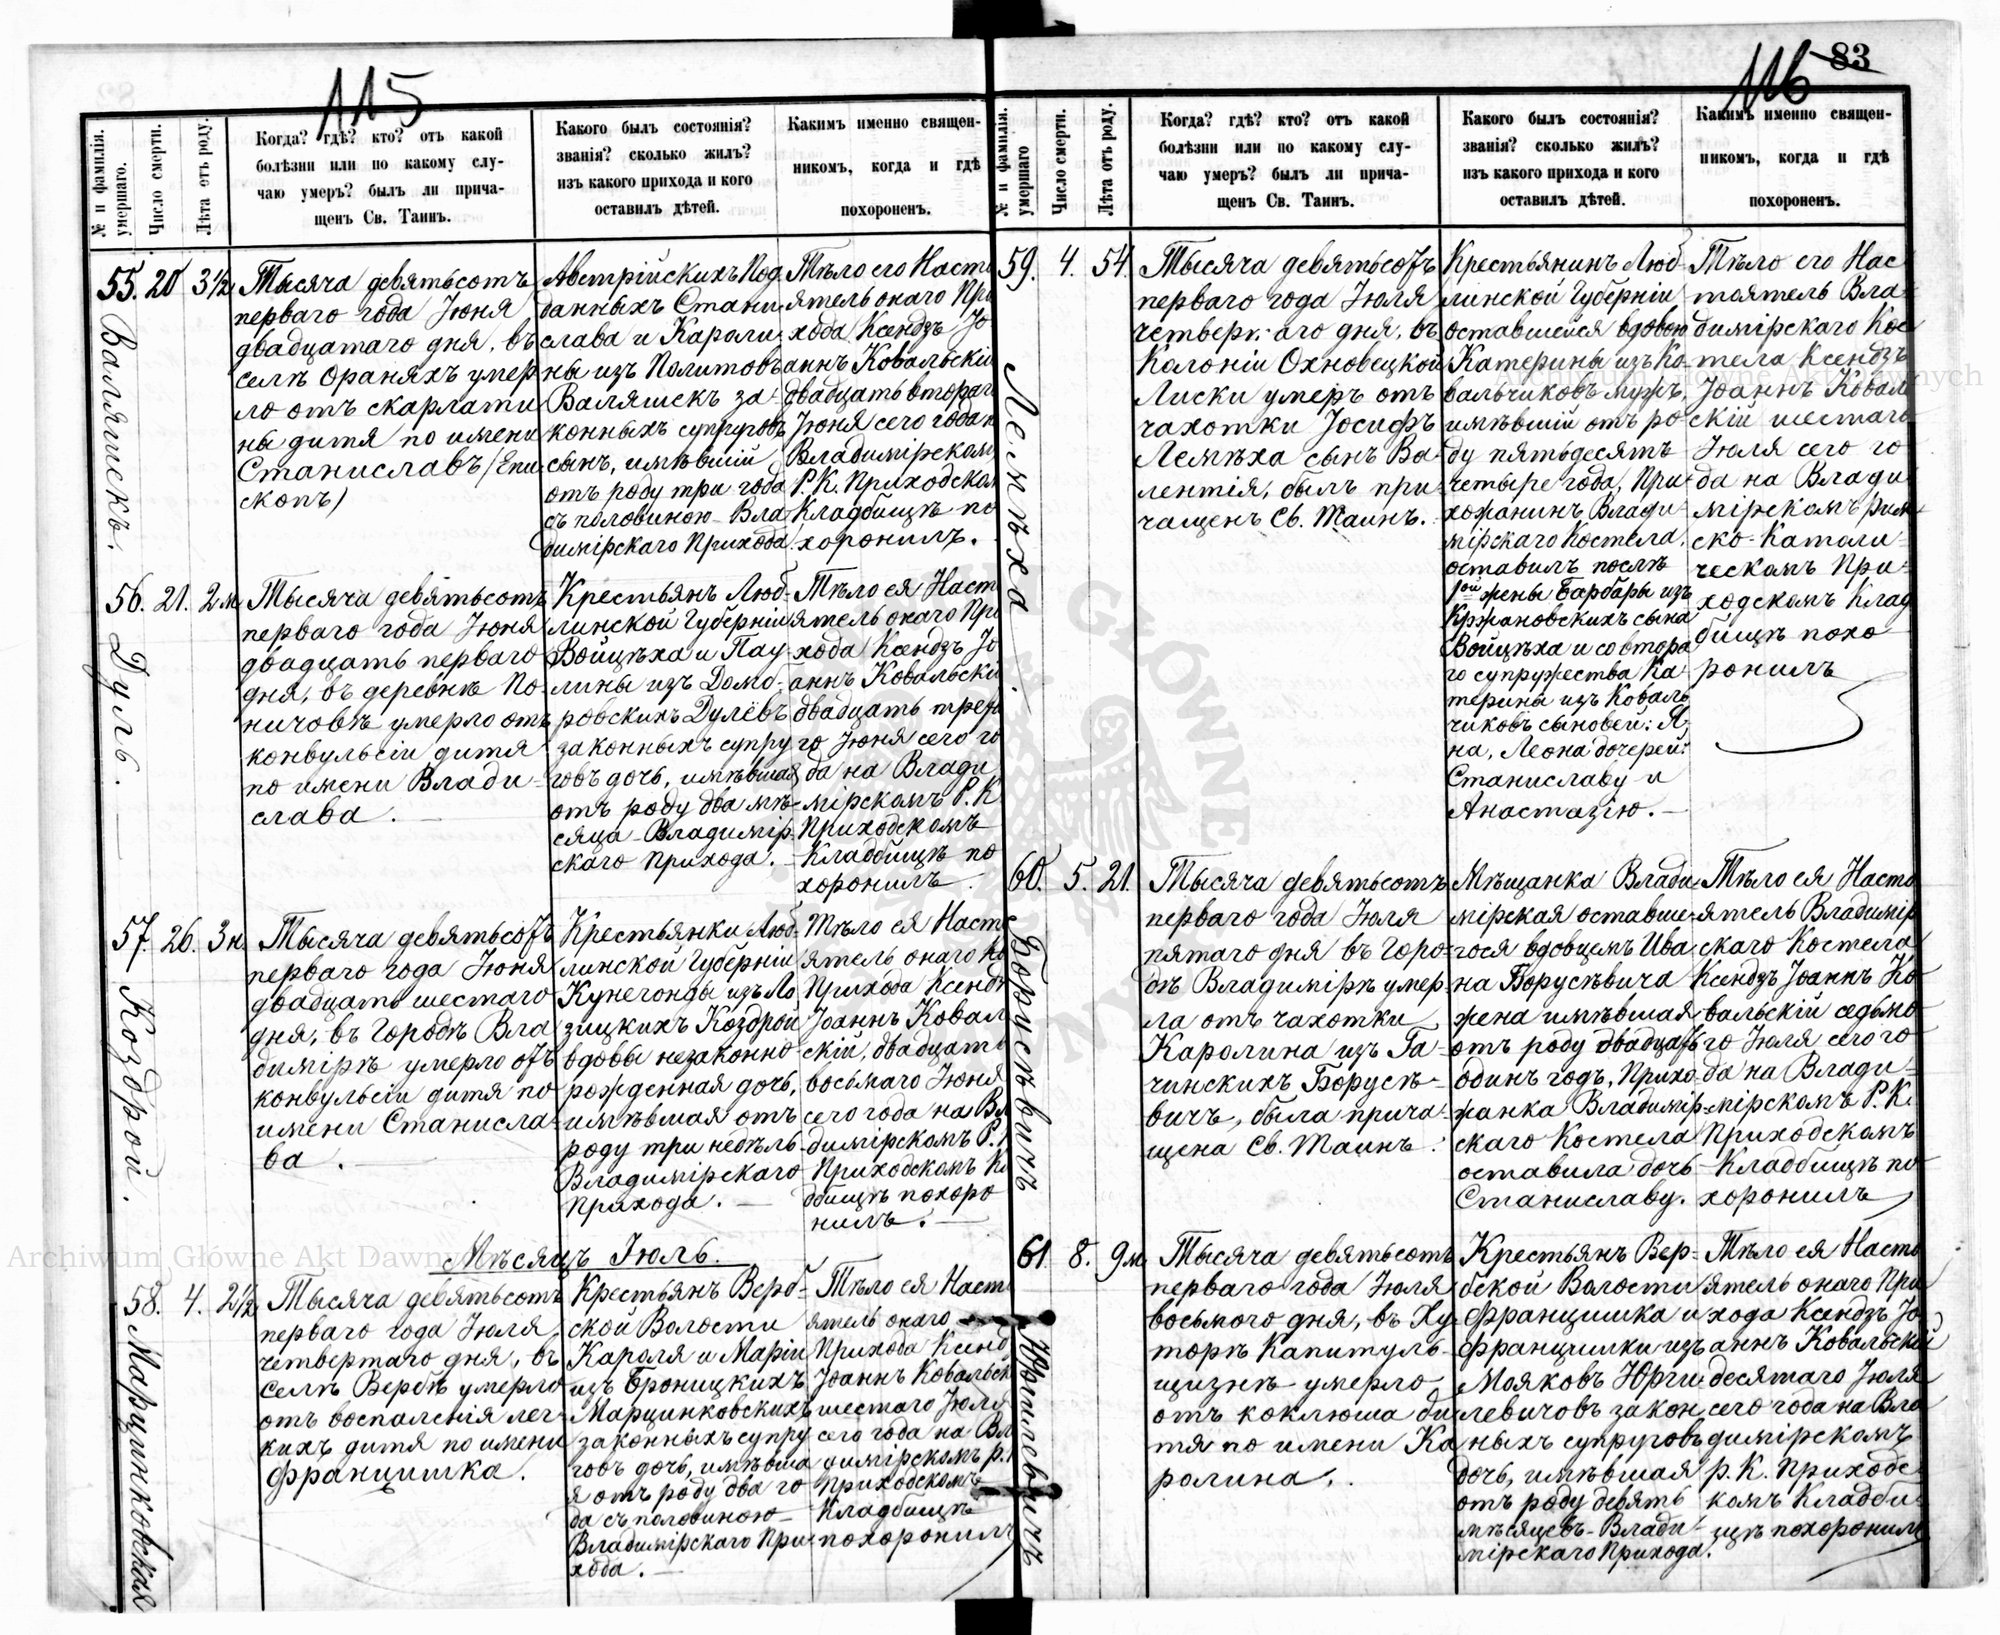 115
№ и фамилія.
умершаго.
Число смерти.
Лѣта отъ роду.
Когда? гдѣ? кто? отъ какой
болѣзни или по какому слу-
чаю умеръ? былъ ли прича-
щенъ Св. Таинъ.
Какого былъ состоянія?
званія? сколько жилъ?
изъ какого прихода и кого
оставилъ дѣтей.
Какимъ именно священ-
никомъ, когда и гдѣ
похороненъ.
55. 20 3½
Валяшекъ.
Тысяча девятьсотъ
перваго года Іюня
двадцатаго дня, въ
селѣ Ораняхъ умер
ло отъ скарлати
ны дитя по имени
Станиславъ (Епи
скопъ)
Австрійскихъ Под
данныхъ Стани-
слава и Кароли-
ны изъ Политовъ
Валяшекъ за-
конныхъ супруговъ
сынъ, имѣвшій
отъ роду три года
съ половиною Вла
димірскаго Прихода.
Тѣло его Насто
ятель онаго При
хода Ксендзъ Іо
аннъ Ковальскій
двадцать втораго
Іюня сего года на
Владимірскомъ
Р. К. Приходском
Кладбищѣ по
хоронилъ.
56. 21. 2 м
Дуль.
Тысяча девятьсотъ
перваго года Іюня
двадцать перваго
дня, въ деревнѣ По-
ничовѣ умерло отъ
конвульсіи дитя
по имени Влади-
слава.
Крестьянъ Люб-
линской Губерніи
Войцѣха и Пау-
лины изъ Домб-
ровскихъ Дулёвъ
законныхъ супру
говъ дочь, имѣвшая
отъ роду два мѣ-
сяца Владимір-
скаго Прихода.
Тѣло ея Насто
ятель онаго При
хода Ксендзъ Іо
аннъ Ковальскій
двадцать третья
го Іюня сего го
да на Влади
мірскомъ Р. К
Приходскомъ
Кладбищѣ по
хоронилъ.
57. 26. 3 н.
Коздрой.
Тысяча девятьсотъ
перваго года Іюня
двадцать шестаго
дня, въ Городѣ Вла
димірѣ умерло отъ
конвульсіи дитя по
имени Станисла-
ва.
Крестьянки Люб-
линской Губерніи
Кунегонды изъ Ло
зицкихъ Коздрой
вдовы незаконно
рожденная дочь,
имѣвшая отъ
роду три недѣль
Владимірскаго
Прихода.
Тѣло ея Насто
ятель онаго
Прихода Ксендзъ
Іоаннъ Коваль
скій, двадцать
восьмаго Іюня
сего года на Вла
димірскомъ Р. К
Приходскомъ Кла
дбищѣ похоро
нилъ.
Мѣсяцъ Іюль.
58. 4. 2½
Марцинковская
Тысяча девятьсотъ
перваго года Іюля,
четвертаго дня, въ
селѣ Вербѣ умерло
отъ воспаленія лег-
кихъ дитя по имени
Францишка.
Крестьянъ Верб-
ской Волости
Кароля и Маріи
изъ Броницкихъ
Марцинковскихъ
законныхъ супру
говъ дочь, имѣвша
я отъ роду два го
да съ половиною
Владимірскаго При-
хода.
Тѣло ея Насто
ятель онаго
Прихода Ксендзъ
Іоаннъ Ковальскій
шестаго Іюля
сего года на Вла
димірскомъ Р. К
Приходскомъ
Кладбищѣ
похоронилъ
116 83
№ и фамилія.
умершаго
Число смерти.
Лѣта отъ роду.
Когда? гдѣ? кто? отъ какой
болѣзни или по какому слу-
чаю умеръ? былъ ли прича-
щенъ Св. Таинъ.
Какого былъ состоянія?
званія? сколько жилъ?
изъ какого прихода и кого
оставилъ дѣтей.
Какимъ именно священ-
никомъ, когда и гдѣ
похороненъ.
59. 4. 54.
Лемѣха.
Тысяча девятьсотъ
перваго года Іюля
четверт. аго дня, въ
Колоніи Охновецкой
Лиски умеръ отъ
чахотки Іосифъ
Лемѣха сынъ Ва-
лентія, былъ при-
чащенъ Св. Таинъ.
Крестьянинъ Люб
линской Губерніи
оставшейся вдовою
Катерины изъ Ко-
вальчиковъ мужъ,
имѣвшій отъ ро-
ду пятьдесятъ
четыре года, При-
хожанинъ Влади-
мірскаго Костела,
оставилъ послѣ
1ой жены Барбары изъ
Кржановскихъ сына
Войцѣха и со втора
го супружества Ка
терина изъ Коваль
чиковъ сыновей: Я
на, Леона дочерей:
Станиславу и
Анастазію.
Тѣло его Нас
тоятель Вла-
димірскаго Кос
тела Ксендзъ
Іоаннъ Коваль
скій шестаго
Іюля сего го
да на Влади
мірскомъ Рим
ско-Католи-
ческомъ При-
ходскомъ Клад
бищѣ похо
ронилъ
60. 5. 21.
Борусѣвичъ
Тысяча девятьсотъ
перваго года Іюля
пятаго дня въ Горо-
дѣ Владимірѣ умер-
ла отъ чахотки
Каролина изъ Га-
чинскихъ Борусѣ-
вичъ, была прича-
щена Св. Таинъ.
Мѣщанка Влади
мірская оставше-
гося вдовцемъ Ива
на Борусѣвича
жена имѣвшая
отъ роду двадцать
одинъ годъ, Прихо
жанка Владимір-
скаго Костела
оставила дочь
Станиславу.
Тѣло ея Насто
ятель Владимір
скаго Костела
Ксендзъ Іоаннъ Ко
вальскій седьмо
го Іюля сего го
да на Влади-
мірскомъ Р. К.
Приходскомъ
Кладбищѣ по
хоронилъ
61. 8. 9 м.
Юргилевичъ
Тысяча девятьсотъ
перваго года Іюля
восьмого дня, въ Ху-
торѣ Капитуль-
щизнѣ умерло
отъ коклюша ди
тя по имени Ка
ролина.
Крестьянъ Вер-
бской Волости
Францишка и
Францишки изъ
Мояковъ Юрги-
левичовъ закон
ныхъ супруговъ
дочь, имѣвшая
отъ роду девять
мѣсяцевъ Влади-
мірскаго Прихода.
Тѣло ея Насто
ятель онаго При
хода Ксендзъ Іо
аннъ Ковальскій
десятаго Іюля
сего года на Вла
димірскомъ
Р. К. Приходс-
комъ Кладби-
щѣ похоронилъ
Archiwum Główne Akt Dawnych
Archiwum Główne Akt Dawnych